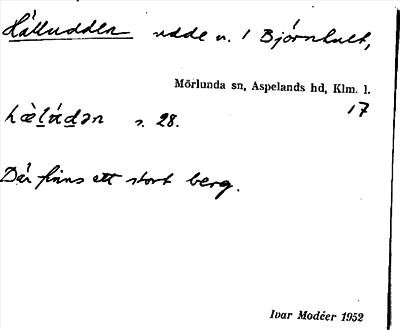 Hälludden udde n. 1 Björnhult,
Mörlunda sn, Aspelands hd, Klm. l.
17
s. 28.
Där finns ett stort berg.
Ivar Modéer 1952